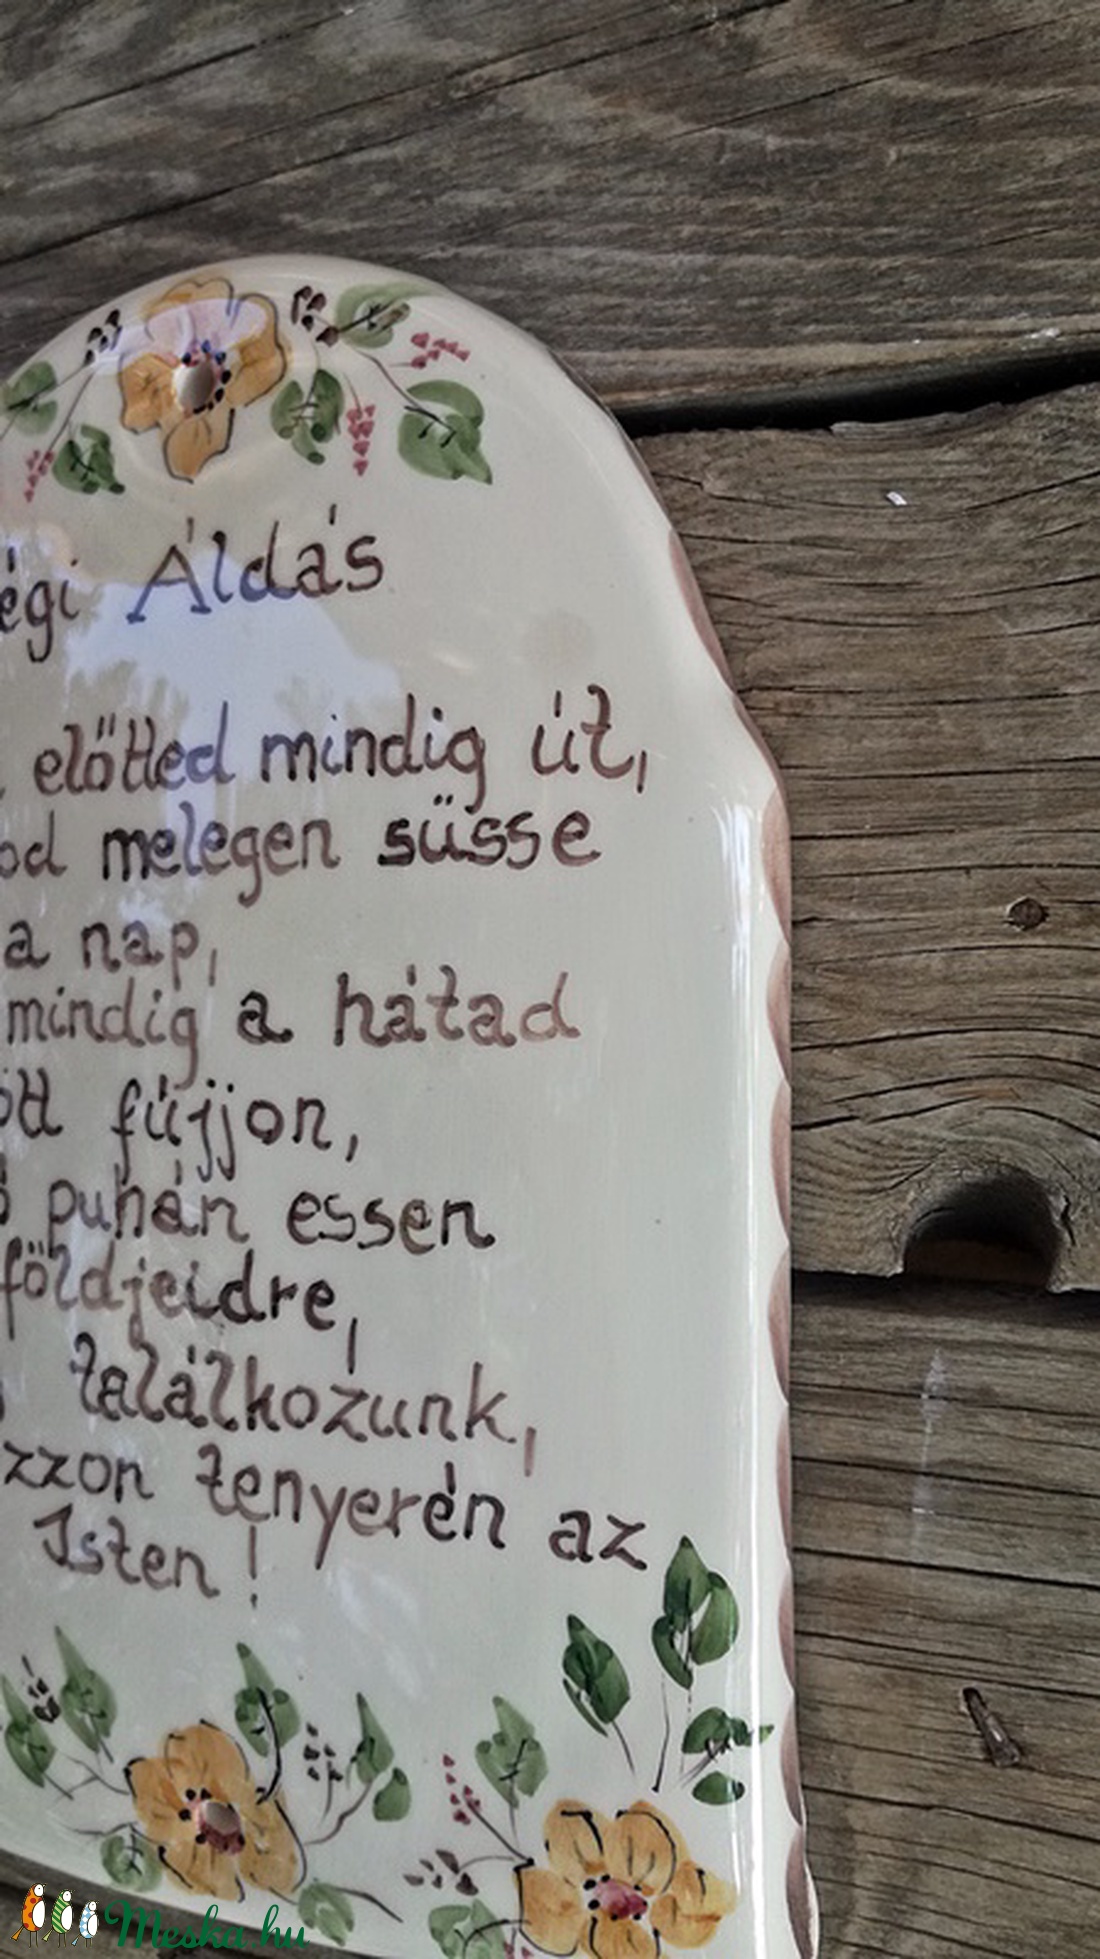 égi Áldás
előtted mindig út,
od melegen süsse
a nap,
mindig a hátad
ött fújjon,
ő puhán essen
földjeidre,
találkozunk,
zzon tenyerén az
Isten!
Meska.hu